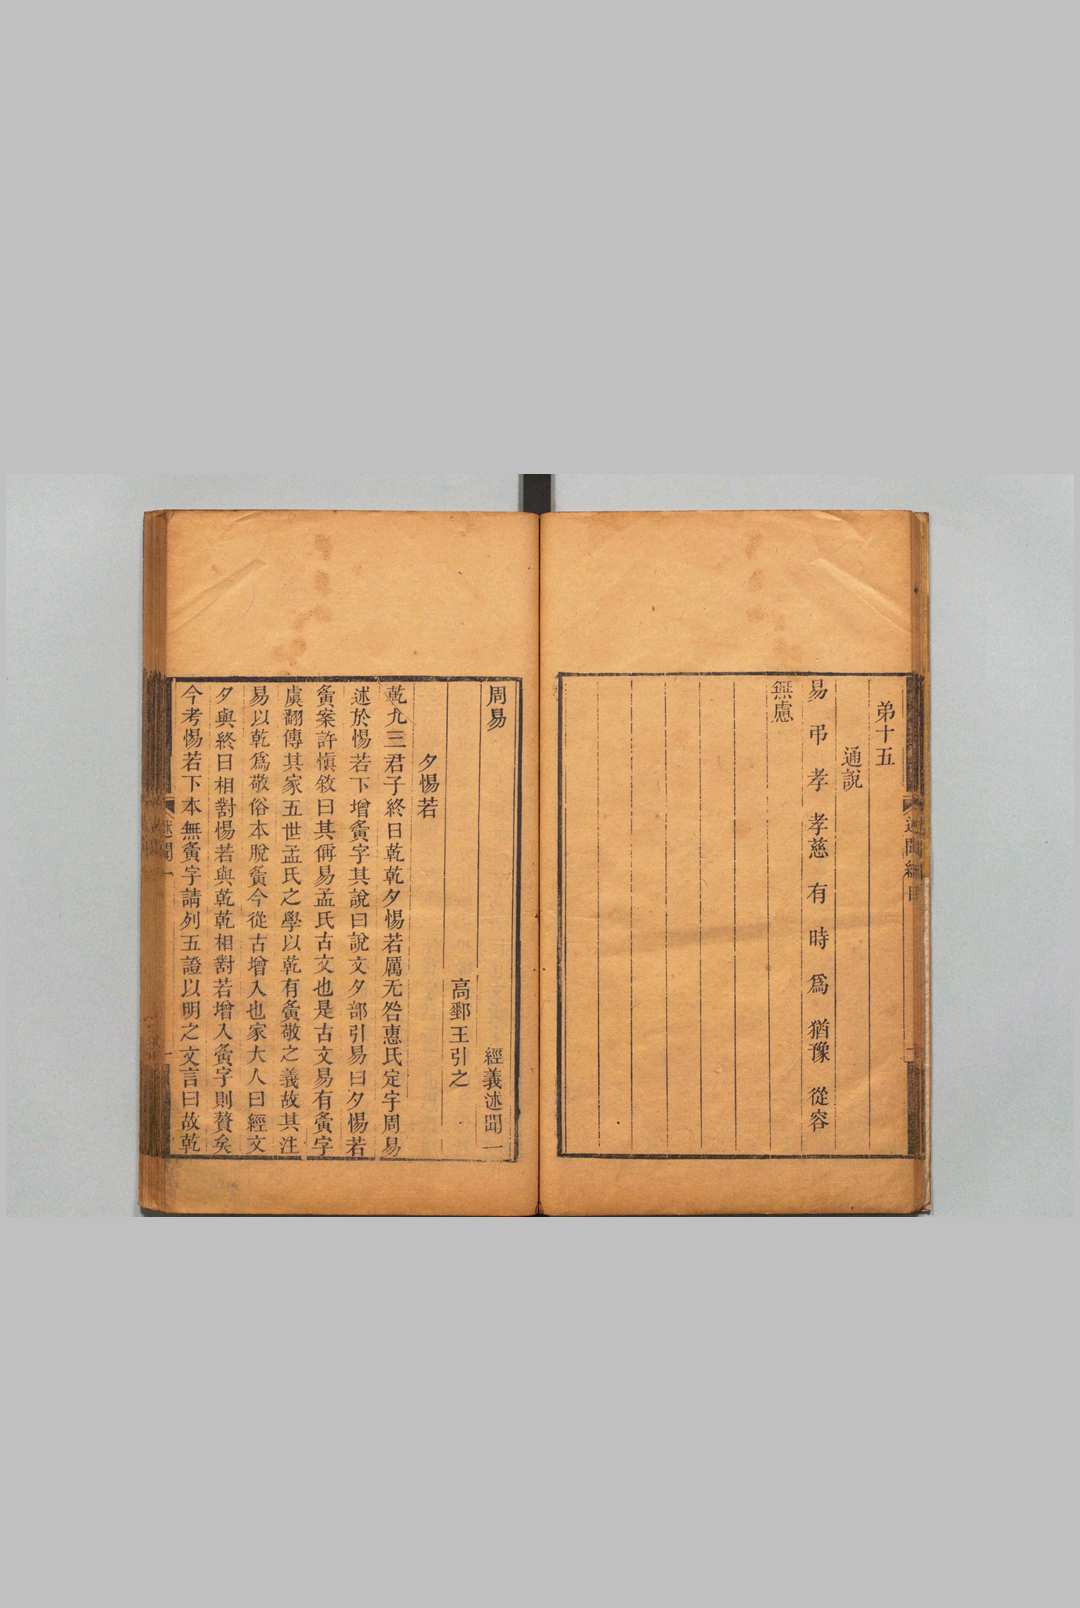 弟十五
通說
易 弔 孝 孝慈 有 時 爲 猶豫 從容
無慮
周易 經義述聞一
高郵王引之
夕惕若
乾九三君子終日乾乾夕惕若厲无咎惠氏定宇周易
述於惕若下增夤字其說曰說文夕部引易曰夕惕若
夤案許愼敘曰其偁易孟氏古文也是古文易有夤字
虞翻傳其家五世孟氏之學以乾有夤敬之義故其注
易以乾爲敬俗本脫夤今從古增入也家大人曰經文
夕與終日相對惕若與乾乾相對若增入夤字則贅矣
今考惕若下本無夤字請列五證以明之文言曰故乾
述聞一